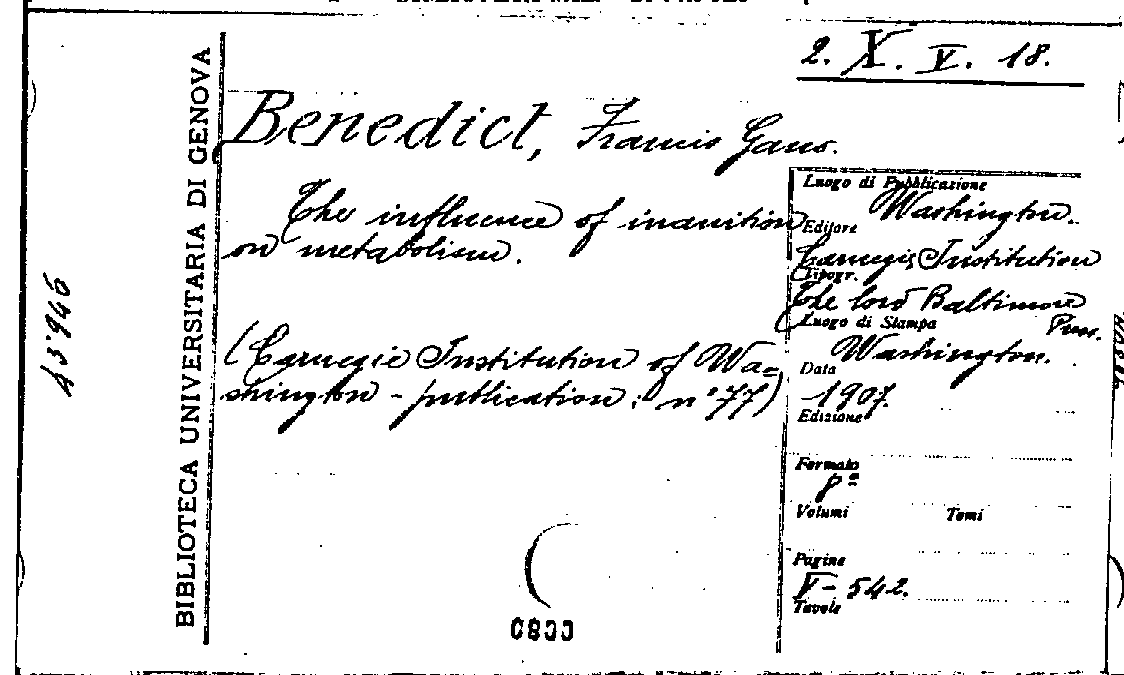 2. X. V. 18.
BIBLIOTECA UNIVERSITARIA DI GENOVA
Benedict, Francis Gano.
The influence of inanition
on metabolism.
(Carnegie Institution of Wa=
shington - publication: n° 77)
Luogo di Pubblicazione
Washington.
Editore
Carnegie Institution
Tipogr.
The lord Baltimore
Press.
Luogo di Stampa
Washington.
Data
1907.
Edizione
Formato
8°
Volumi Tomi
Pagine
V - 542.
Tavole
A 5946